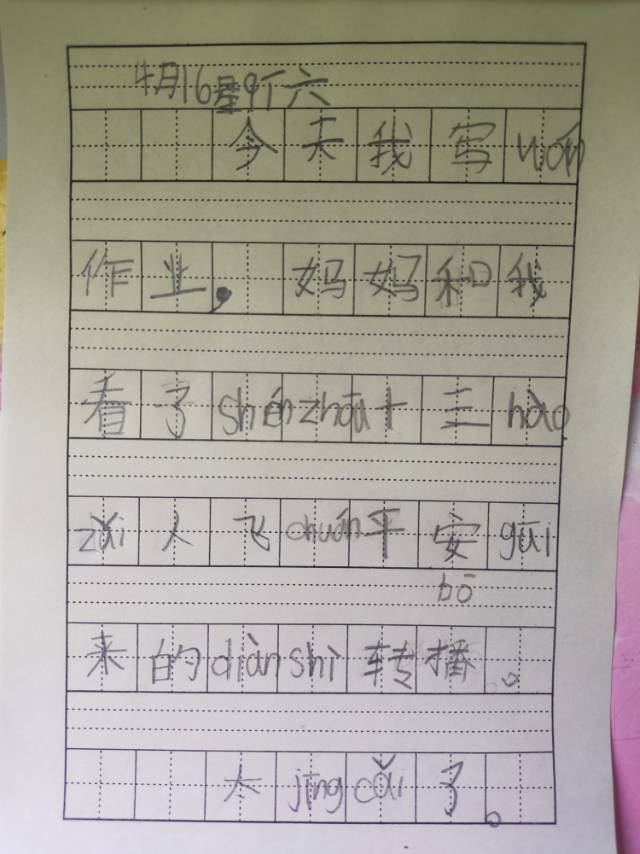 4月16星期六
今天我写wán
作业，妈妈和我
看了shénzhōu十三hào
zǎi人飞chuán平安guī
bō
来的diànshì转播。
太jīngcǎi了。